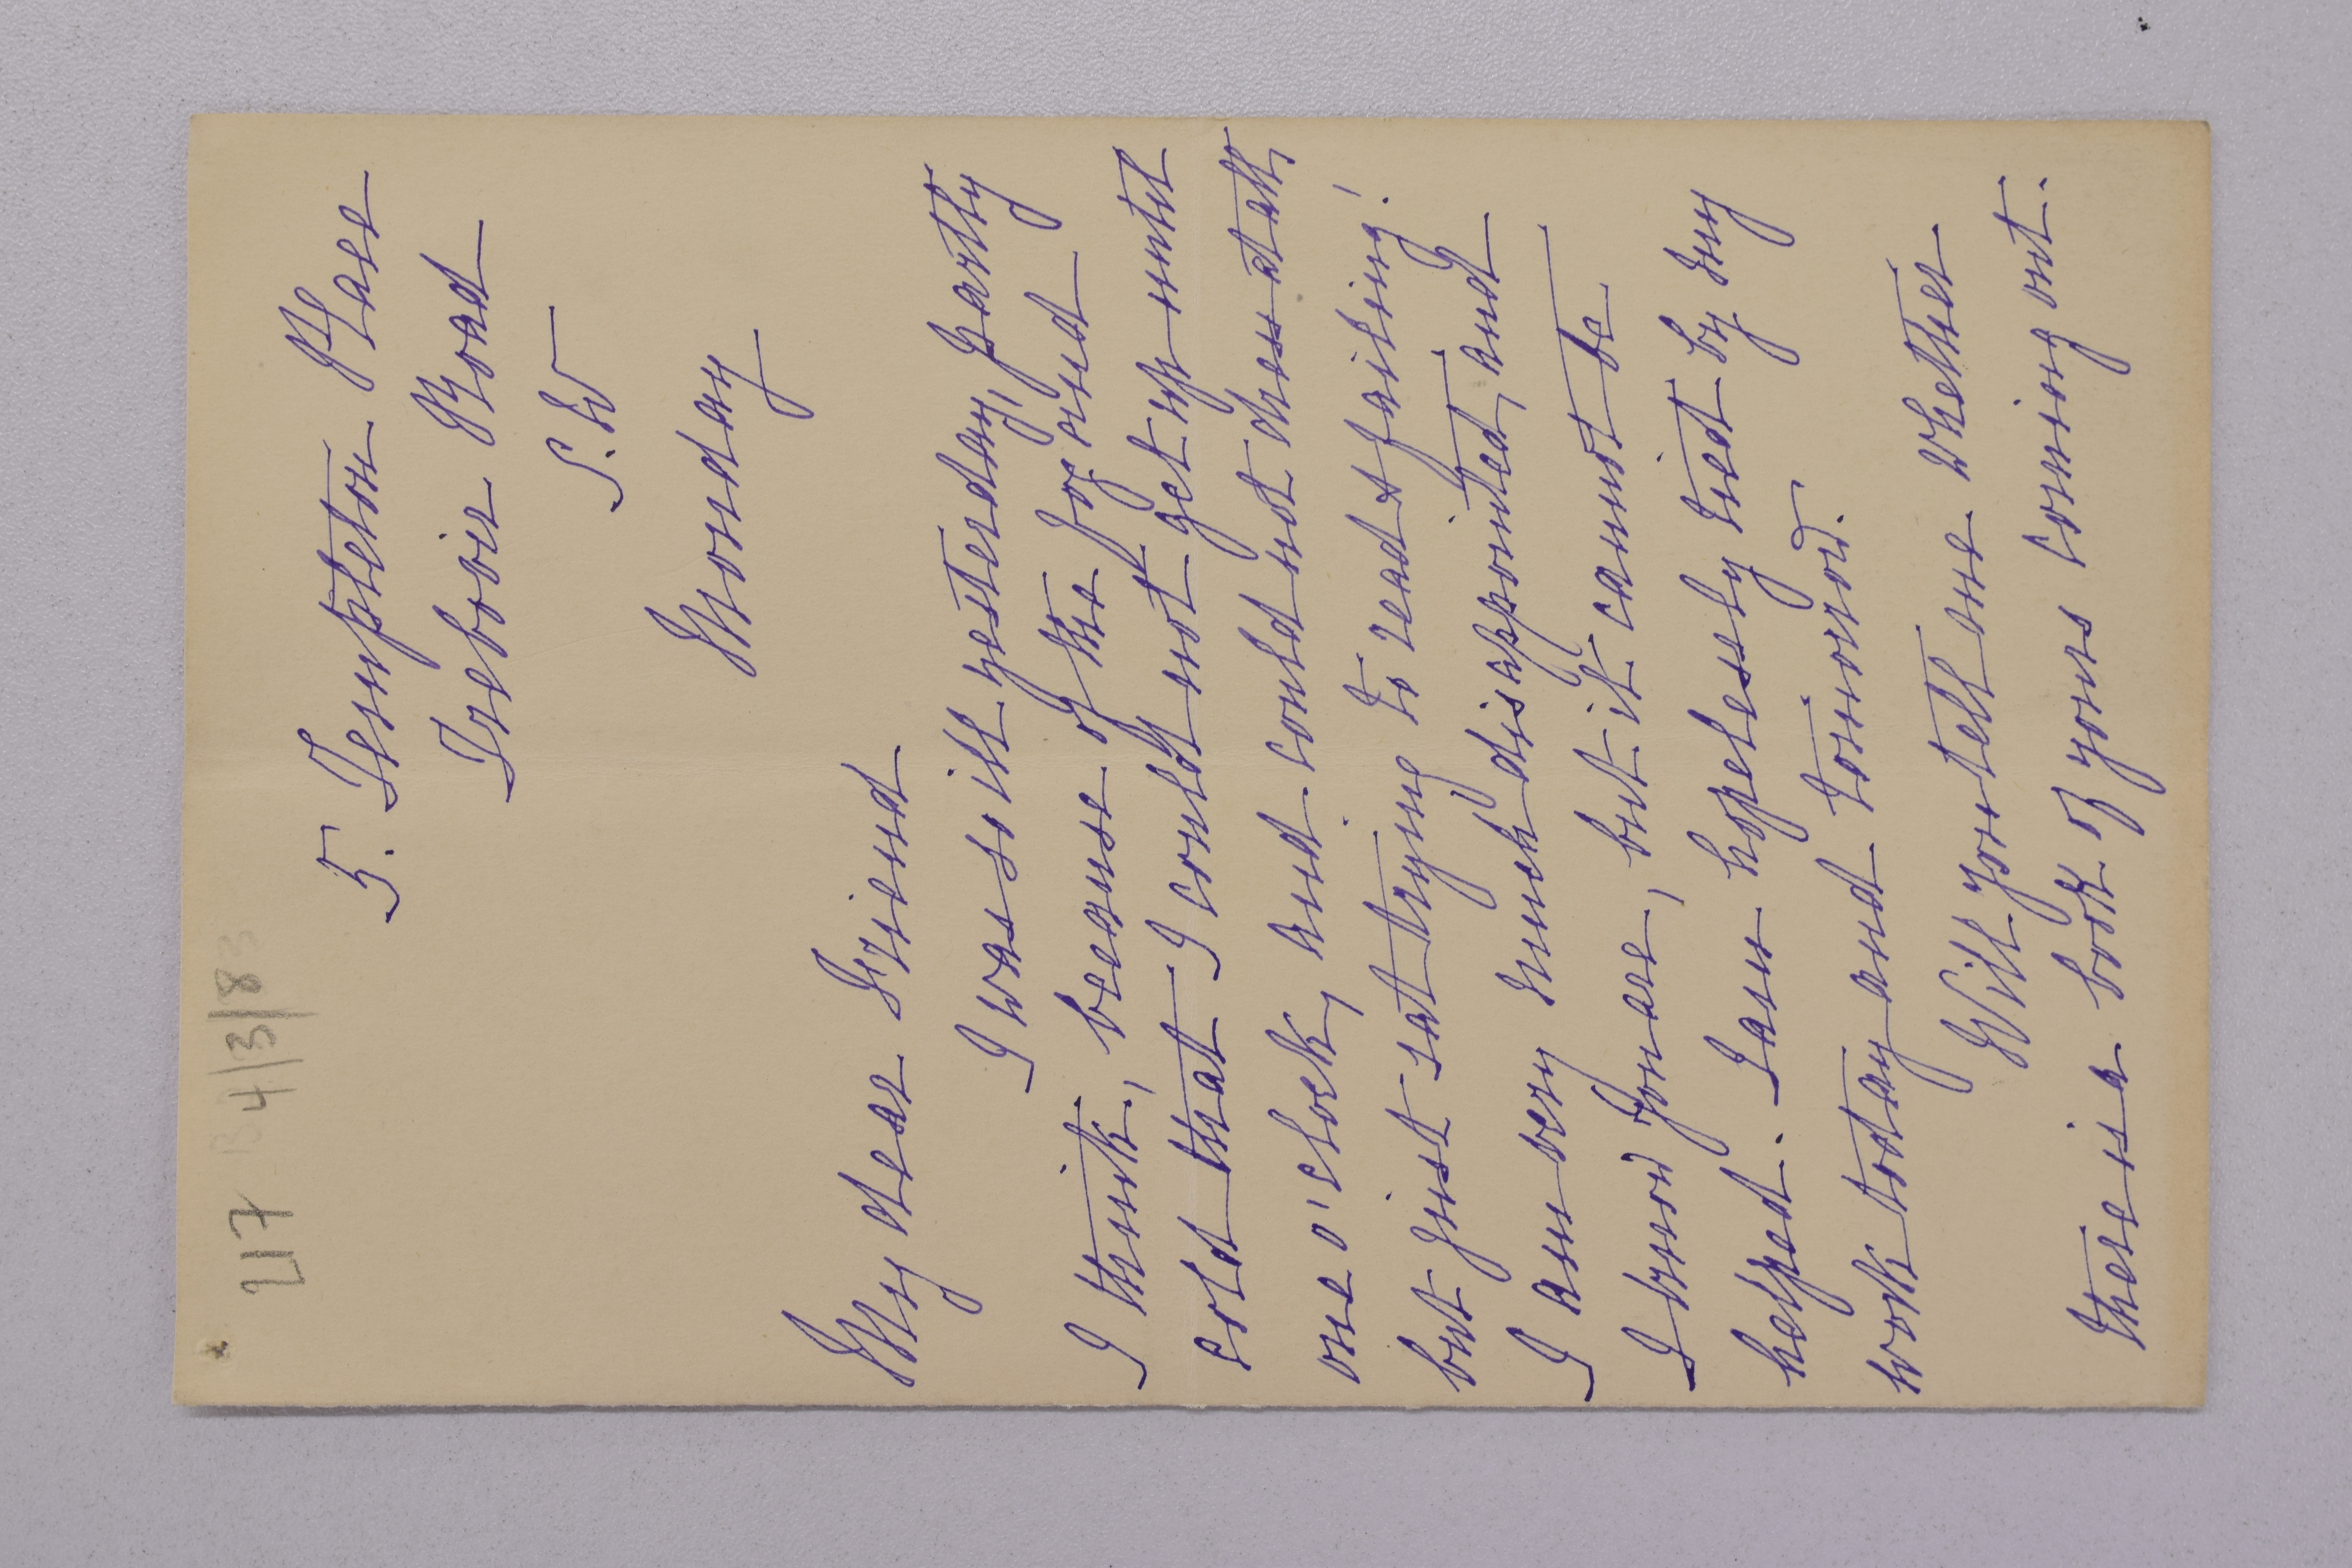 217 B4/3/83
5. Templeton Place
Trebovir Road
S.W
Monday
My dear Friend
I was so ill yesterday, partly
I think, because of the fog and
cold that I could not get up until
one o'clock, and could not dress at all,
but just sat trying to read & failing!
I am very much disappointed, and
I know you are, but it cannot be
helped. I am hopelessly tied by my
work today and tomorrow.
Will you tell me whether
there is a book of yours coming out.